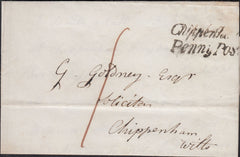 Chippenha
Penny Pos
G. Goldney Esqr
Solicitor
Chippenham
Wilts